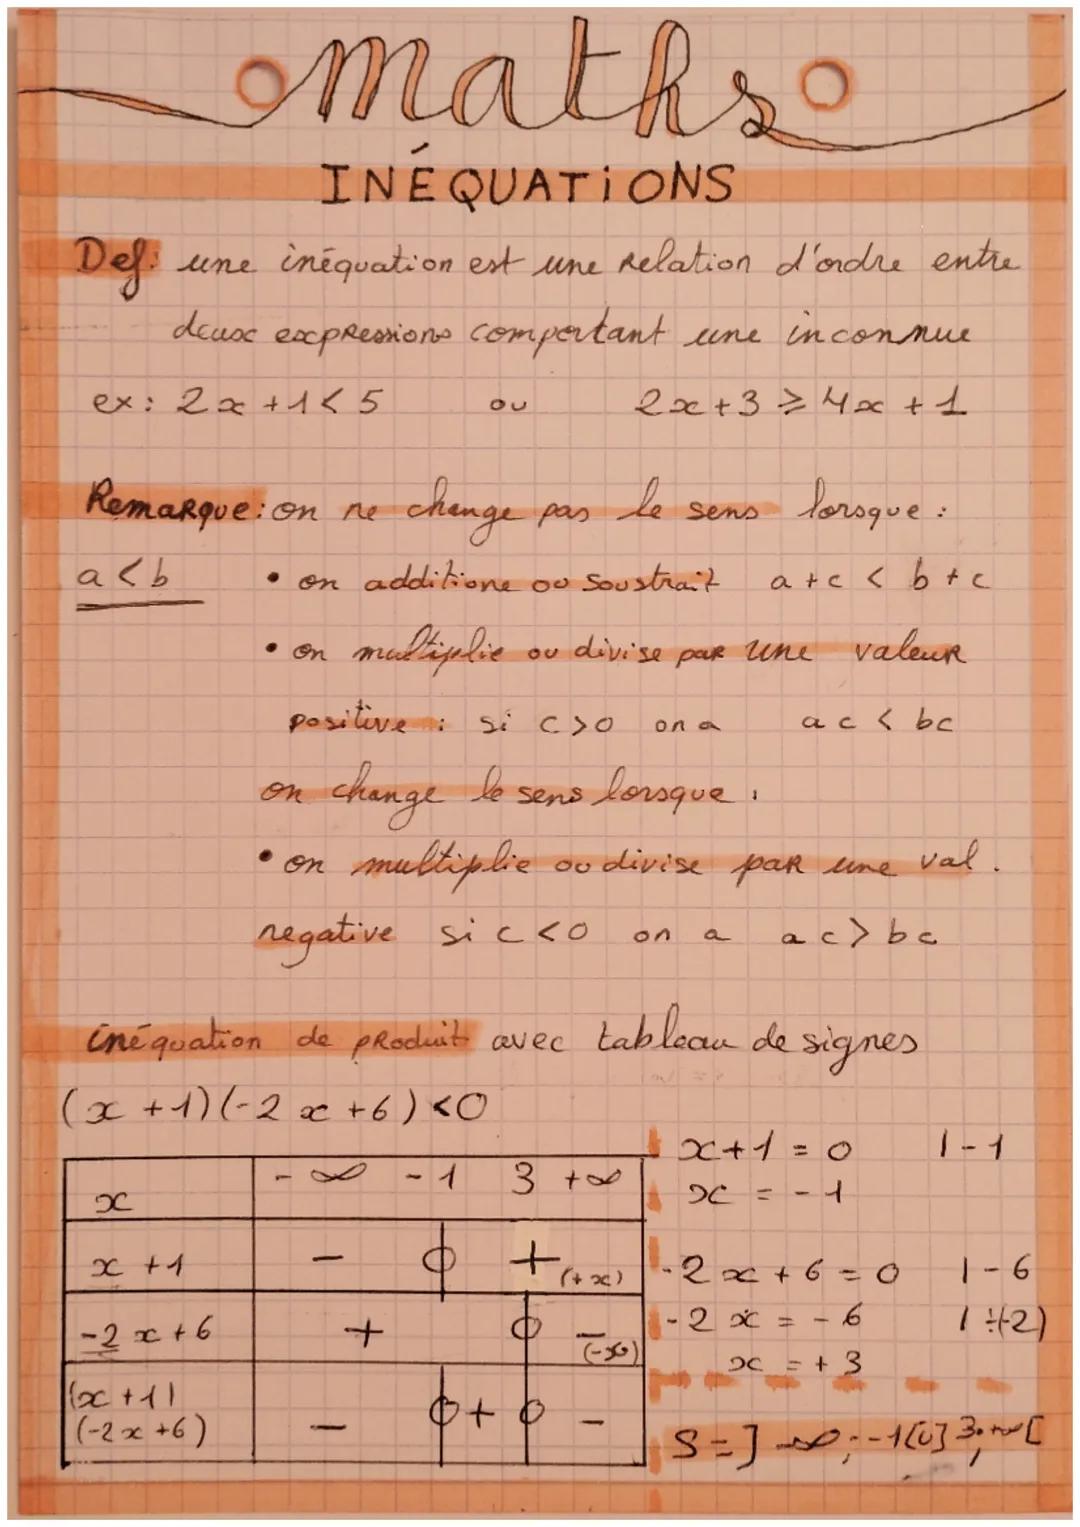 maths
INÉQUATiONS
Def: une inéquation est une relation d'ordre entre
deux expressions comportant une inconnue
ex: 2x + 1 < 5 ou 2x + 3 ≥ 4x + 1
Remarque: on ne change pas le sens lorsque :
a < b • on additione ou soustrait a + c < b + c
• on multiplie ou divise par une valeur
positive : si c > 0 on a ac < bc
on change le sens lorsque :
• on multiplie ou divise par une val.
negative si c < 0 on a ac > bc
inéquation de produit avec tableau de signes
(x + 1)(-2x + 6) < 0
x -∞ -1 3 +∞
x + 1 - 0 + (+x)
-2x + 6 + 0 - (-x)
(x + 1)
(-2x + 6) - 0 + 0 -
x + 1 = 0 | - 1
x = -1
-2x + 6 = 0 | - 6
-2x = -6 | ÷(-2)
x = + 3
S = ]-∞ ; -1[U]3 ; +∞[